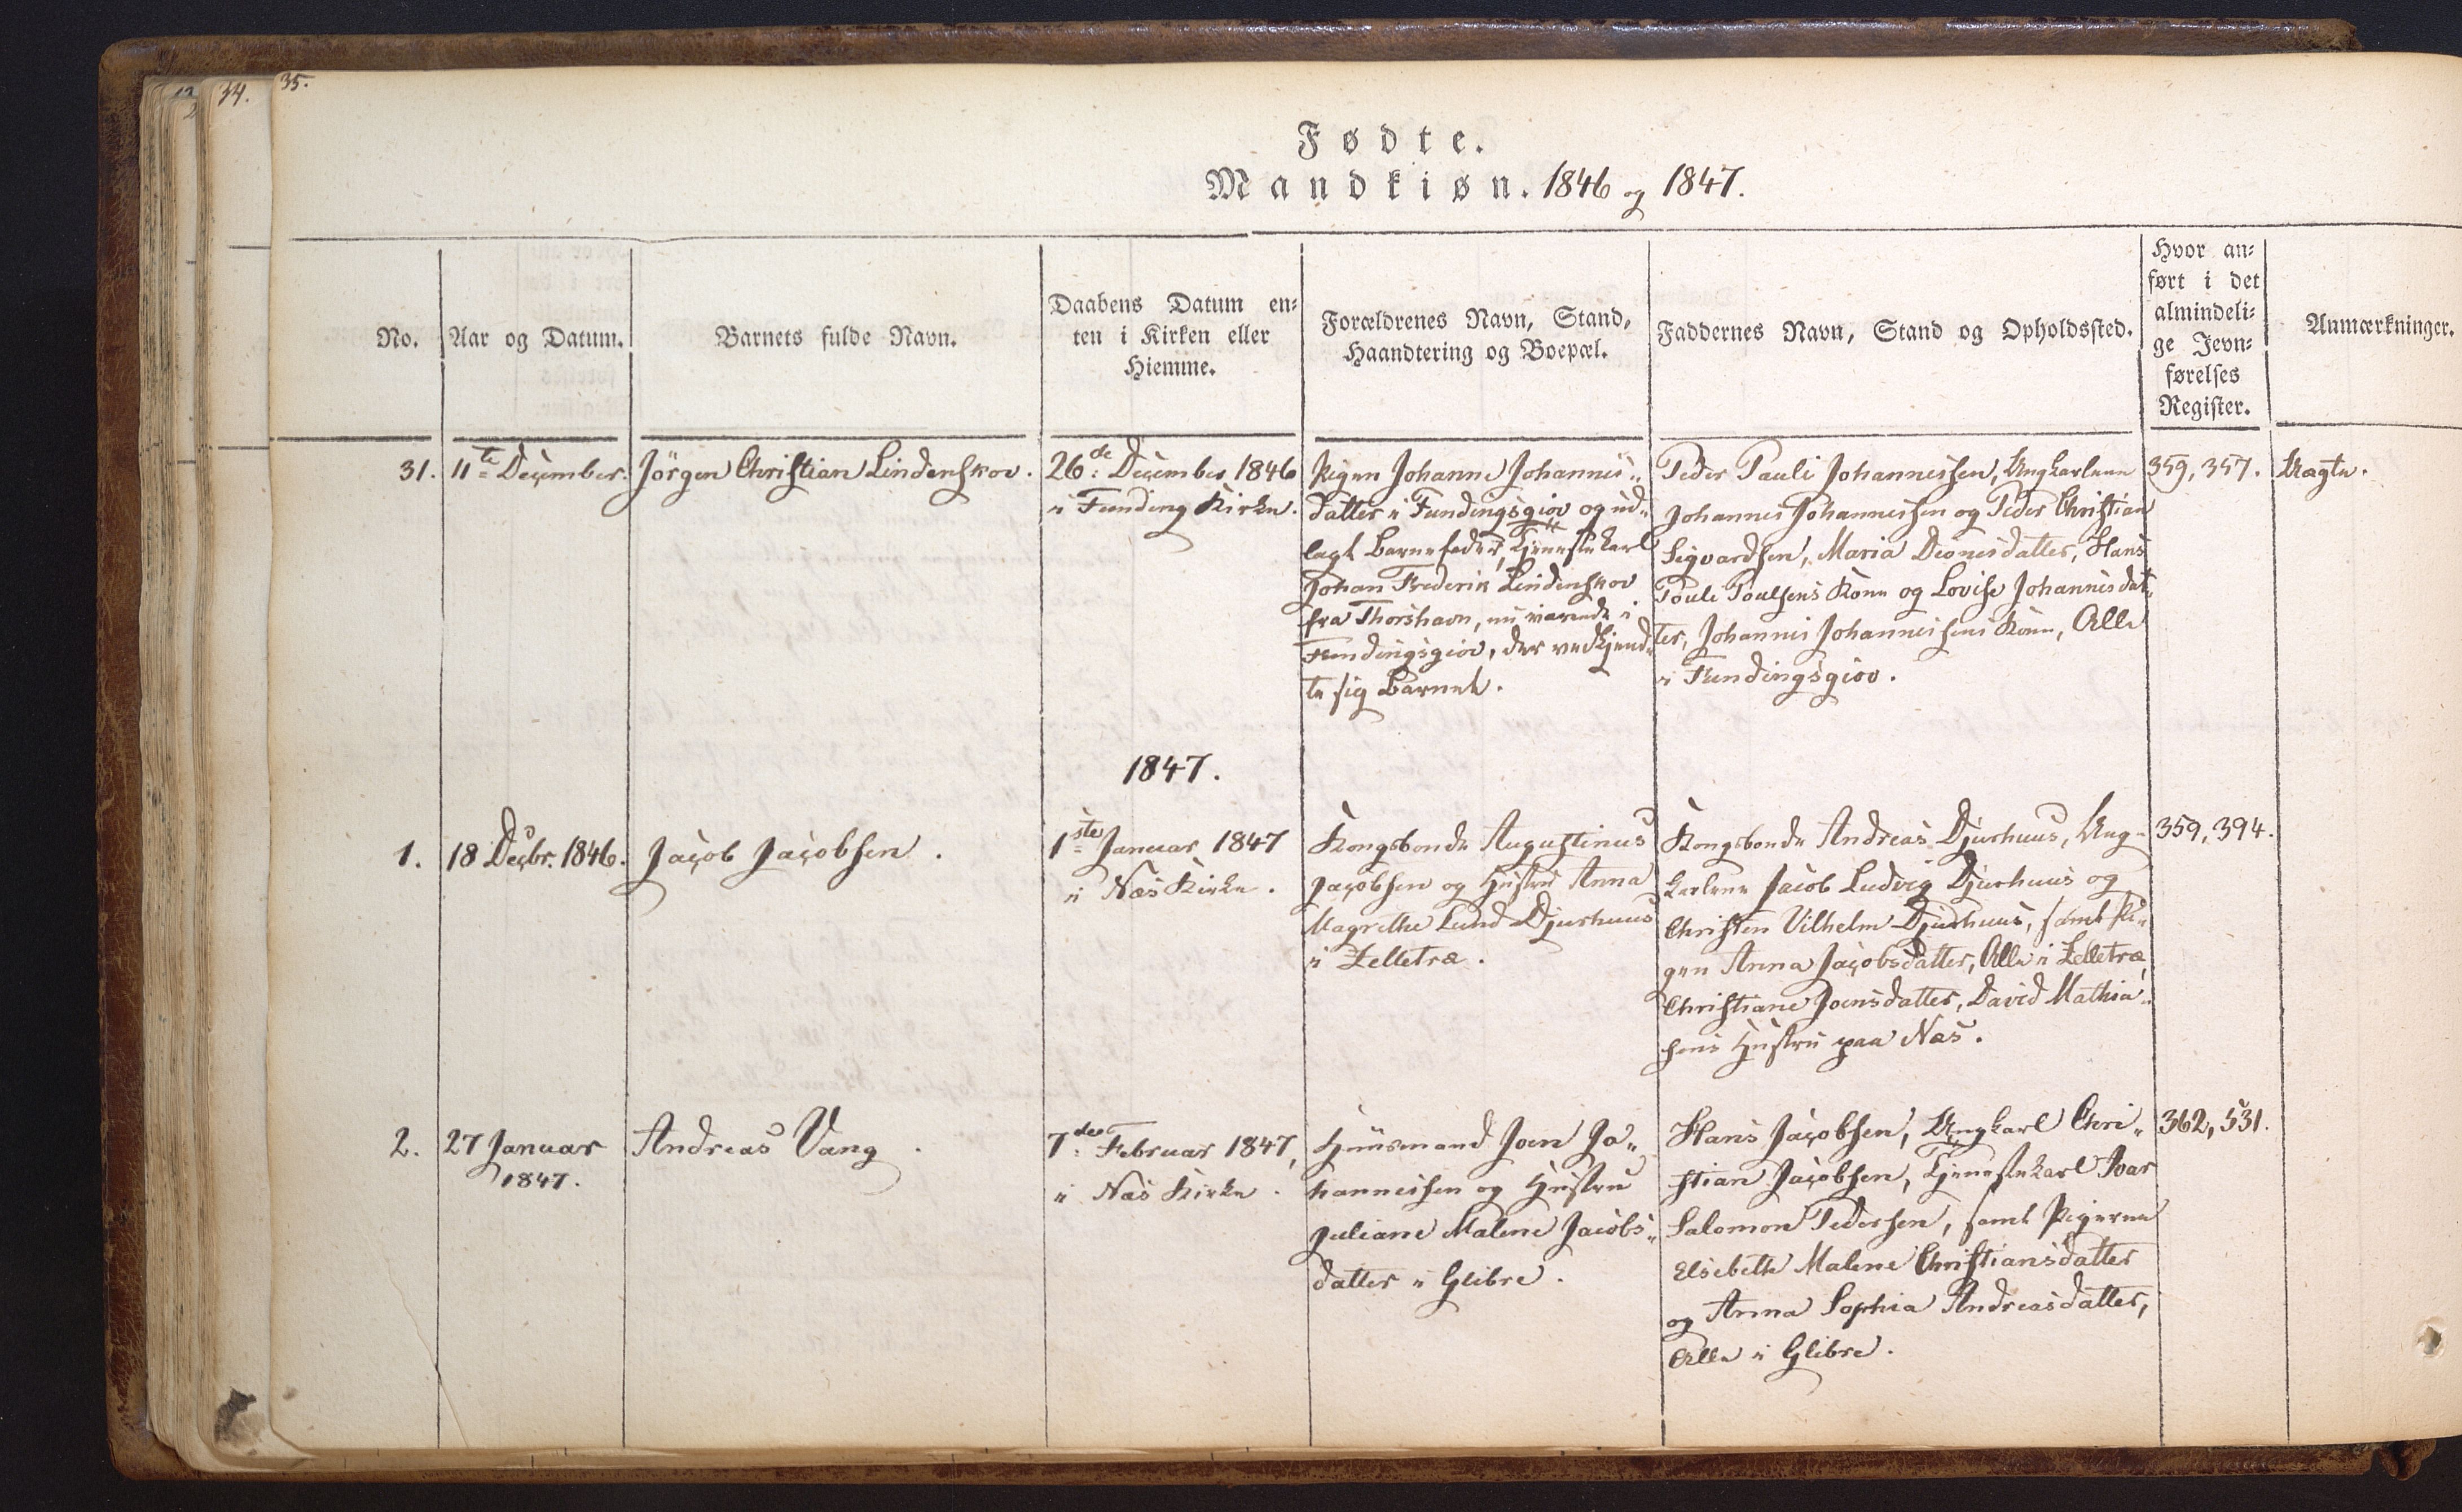 34.
35.
Fødte.
Mandkiøn. 1846 og 1847.
No.
Aar og Datum.
Barnets fulde Navn.
Daabens Datum en-
ten i Kirken eller
Hiemme.
Forældrenes Navn, Stand,
Haandtering og Boepæl.
Faddernes Navn, Stand og Opholdssted.
Hvor an-
ført i det
almindeli-
ge Jevn-
førelses
Register.
Anmærkninger.
31.
11te December.
Jörgen Christian Lindenskov.
26de December 1846
i Funding Kirke.
Pigen Johanne Johannis-
datter i Fundingsgiov og ud-
lagt Barnefader, Tjenestekarl
Johan Frederik Lindenskov
fra Thorshavn, nu værende i
Fundingsgiov, der vedkjend-
te sig Barnet.
Peder Pauli Johannessen, Ungkarlene
Johannes Johannessen og Peder Christian
Sigvardsen, Maria Dionesdatter, Hans
Pouli Poulsens Kone og Lovise Johannisdat-
ter, Johannes Johannesens Kone, Alle
i Fundingsgiov.
359, 357.
Uægte.
1847.
1.
18 Decbr. 1846.
Jacob Jacobsen.
1ste Januar 1847
i Næs Kirke.
Kongsbonde Augustinus
Jacobsen og Hustru Anna
Magrethe Lund Djurhuus
i Zelletræ.
Kongsbonde Andreas Djurhuus, Ung-
karlene Jacob Ludvig Djurhuus og
Christen Vilhelm Djurhuus, samt Pi-
gen Anna Jacobsdatter, Alle i Zelletræ,
Christiane Joensdatter, David Mathia-
sens Hustru paa Næs.
359, 394.
2.
27 Januar
1847.
Andreas Vang.
7de Februar 1847,
i Næs Kirke.
Huusmand Joen Jo-
hannessen og Hustru
Juliane Malene Jacobs-
datter i Glibre.
Hans Jacobsen, Ungkarl Chri-
stian Jacobsen, Tjenestekarl Ivar
Salomon Pedersen, samt Pigerne
Elsebeth Malene Christiansdatter
og Anna Sophia Andreasdatter,
Alle i Glibre.
362, 531.